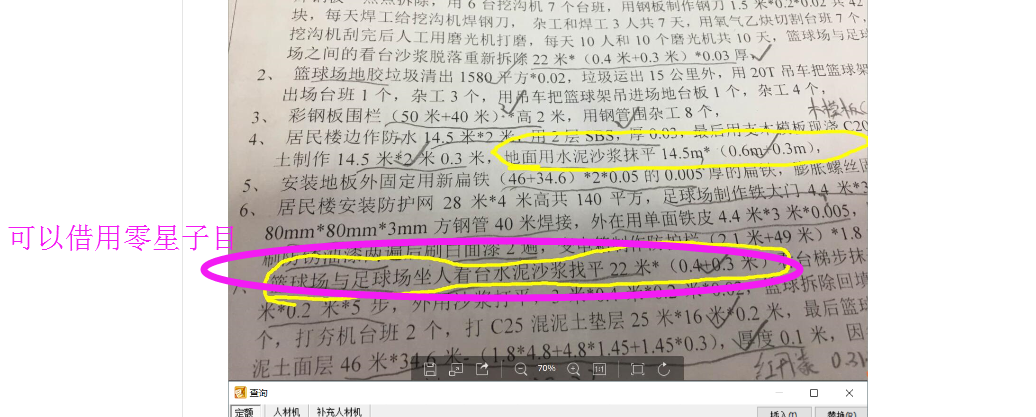 块，每天焊工给挖沟机焊钢刀， 杂工和焊工 3 人共 7 天，用氧气乙炔切割台班 7 个，
挖沟机刮完后人工用磨光机打磨，每天 10 人和 10 个磨光机共 10 天，篮球场与足球
场之间的看台沙浆脱落重新拆除 22 米*（0.4 米+0.3 米）*0.03 厚
2、 篮球场地胶垃圾清出 1580 平方*0.02，垃圾运出 15 公里外，用 20T 吊车把篮球架
出场台班 1 个，杂工 3 个，用吊车把篮球架吊进场地台板 1 个，杂工 4 个，
3、 彩钢板围栏（50 米+40 米）*高 2 米，用钢管围杂工 8 个，
4、 居民楼边作防水 14.5 米*2 米，用 2 层 SBS，厚 0.03，最后用支木模板现浇 C20
土制作 14.5 米*2 米 0.3 米，地面用水泥沙浆抹平 14.5m*（0.6m+0.3m），
5、 安装地板外固定用新扁铁（46+34.6）*2*0.05 的 0.005 厚的扁铁，膨胀螺丝固
6、 居民楼安装防护网 28 米*4 米高共 140 平方，足球场制作铁大门 4.4 米*3
80mm*80mm*3mm 方钢管 40 米焊接，外在用单面铁皮 4.4 米*3 米*0.005，
可以借用零星子目
米+49 米）*1.8
篮球场与足球场坐人看台水泥沙浆找平 22 米*（0.4+0.3 米）台梯步抹
米*0.2 米*5 步，外用沙浆打平
篮球拆除回填
个，打夯机台班 2 个，打 C25 混泥土垫层 25 米*16 米*0.2 米，最后篮
泥土面层 46 米*34.6 米-（1.8*4.8+4.8*1.45+1.45*0.3），厚度 0.1 米，因
70%
1:1
查询
定额 人材机 补充人材机
插入(I) 替换(R)